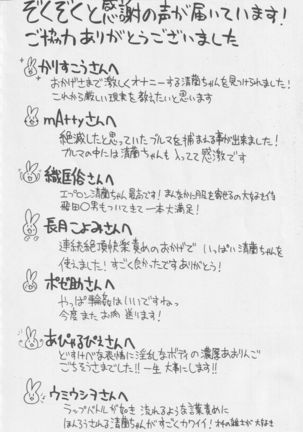 ぞくぞくと感謝の声が届いています!
ご協力ありがとうございました
かりすこうさんへ
おかげさまで激しくオナニーする清蘭ちゃんを見つけられました!
これから厳しい現実を教えたいと思います
mAttyさんへ
絶滅したと思っていたブルマを捕まえる事が出来ました!
ブルマの中には清蘭ちゃんも入ってて感激です
織匠俗さんへ
エプロン清蘭ちゃん最高です!まんなかに服を寄せるの大好き侍
飛田〇男もついてきて一本大満足!
長月こよみさんへ
連続絶頂快楽責めのおかげで いっぱい清蘭ちゃんを
使えました!すごく良かったですありがとう!
ポゼ助さんへ
やっぱ輪姦はいいですねっ
今度またお肉 送ります!
あぴゅるぴえさんへ
どすけべな表情に淫乱なボディの濃厚あおりんご
ごちそうさまでした!!一生 大事にします!!
ウミウシヲさんへ
ラップバトルが如き 流れるような言葉責めに
ほんろうされる清蘭ちゃんがすごくカワイイ!